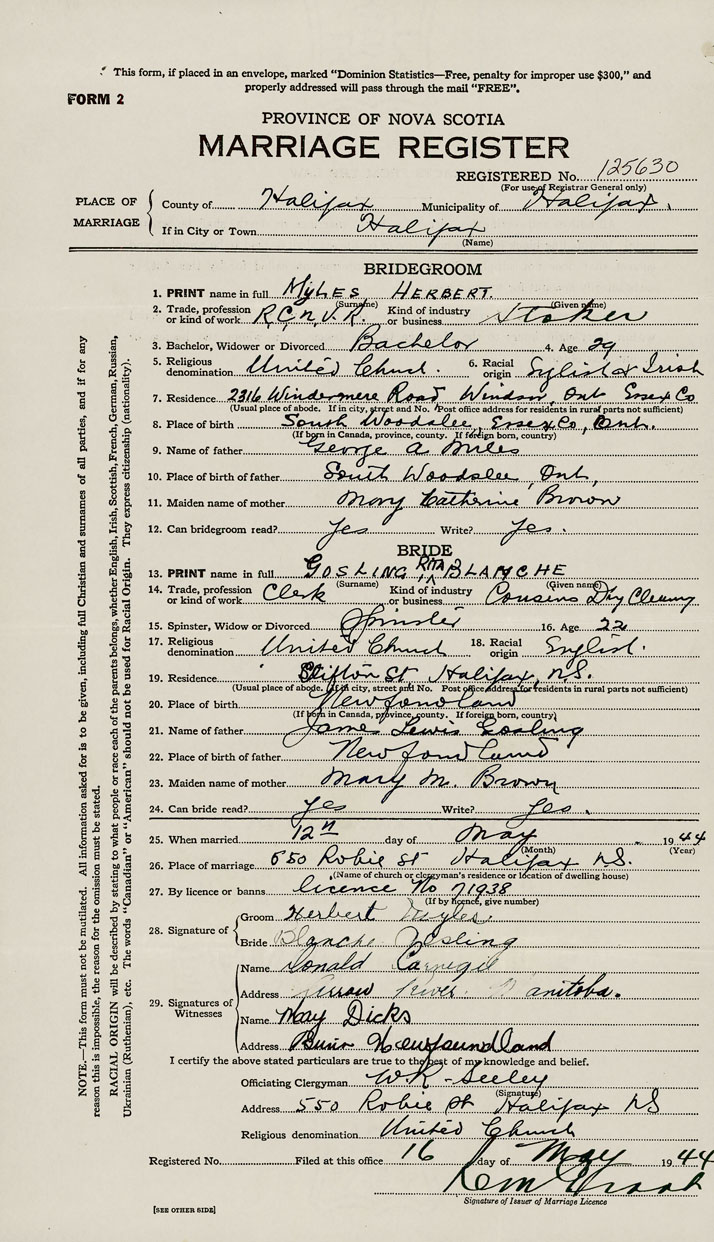 This form, if placed in an envelope, marked "Dominion Statistics—Free, penalty for improper use $300," and
properly addressed will pass through the mail "FREE".
FORM 2
PROVINCE OF NOVA SCOTIA
MARRIAGE REGISTER
REGISTERED No. 125630
(For use of Registrar General only)
PLACE OF MARRIAGE
County of Halifax Municipality of Halifax
If in City or Town Halifax
(Name)
BRIDEGROOM
1. PRINT name in full MYLES HERBERT.
(Surname) (Given name)
2. Trade, profession or kind of work R.C.N.V.R. Kind of industry or business Stoker
3. Bachelor, Widower or Divorced Bachelor 4. Age 29
5. Religious denomination United Church. 6. Racial origin English & Irish
7. Residence 2316 Windermere Road Windsor, Ont Essex Co
(Usual place of abode. If in city, street and No. Post office address for residents in rural parts not sufficient)
8. Place of birth South Woodslee, Essex Co, Ont.
(If born in Canada, province, county. If foreign born, country)
9. Name of father George A Miles
10. Place of birth of father South Woodslee, Ont,
11. Maiden name of mother Mary Catherine Brown
12. Can bridegroom read? Yes Write? Yes.
BRIDE
13. PRINT name in full GOSLING RITA BLANCHE
(Surname) (Given name)
14. Trade, profession or kind of work Clerk Kind of industry or business Cousins Dry Cleaning
15. Spinster, Widow or Divorced Spinster 16. Age 22
17. Religious denomination United Church 18. Racial origin English.
19. Residence Clifton St Halifax, N.S.
(Usual place of abode. If in city, street and No. Post office address for residents in rural parts not sufficient)
20. Place of birth Newfondland
(If born in Canada, province, county. If foreign born, country)
21. Name of father James Lewis Gosling
22. Place of birth of father Newfondland
23. Maiden name of mother Mary M. Brown
24. Can bride read? Yes Write? Yes.
25. When married 12th day of May 1944
(Month) (Year)
26. Place of marriage 650 Robie St Halifax N.S.
(Name of church or clergyman's residence or location of dwelling house)
27. By licence or banns licence No 71938
(If by licence, give number)
28. Signature of Groom Herbert Myles.
Bride Blanche Gosling
29. Signatures of Witnesses
Name Donald Carnegie
Address Arrow River Manitoba.
Name May Dicks
Address Burin Newfoundland
I certify the above stated particulars are true to the best of my knowledge and belief.
Officiating Clergyman W.R. Seeley
(Signature)
Address 550 Robie St Halifax NS
Religious denomination United Church
Registered No. Filed at this office 16 day of May 1944
Signature of Issuer of Marriage Licence
[SEE OTHER SIDE]
NOTE.—This form must not be mutilated. All information asked for is to be given, including full Christian and surnames of all parties, and if for any
reason this is impossible, the reason for the omission must be stated.
RACIAL ORIGIN will be described by stating to what people or race each of the parents belongs, whether English, Irish, Scottish, French, German, Russian,
Ukrainian (Ruthenian), etc. The words "Canadian" or "American" should not be used for Racial Origin. They express citizenship (nationality).